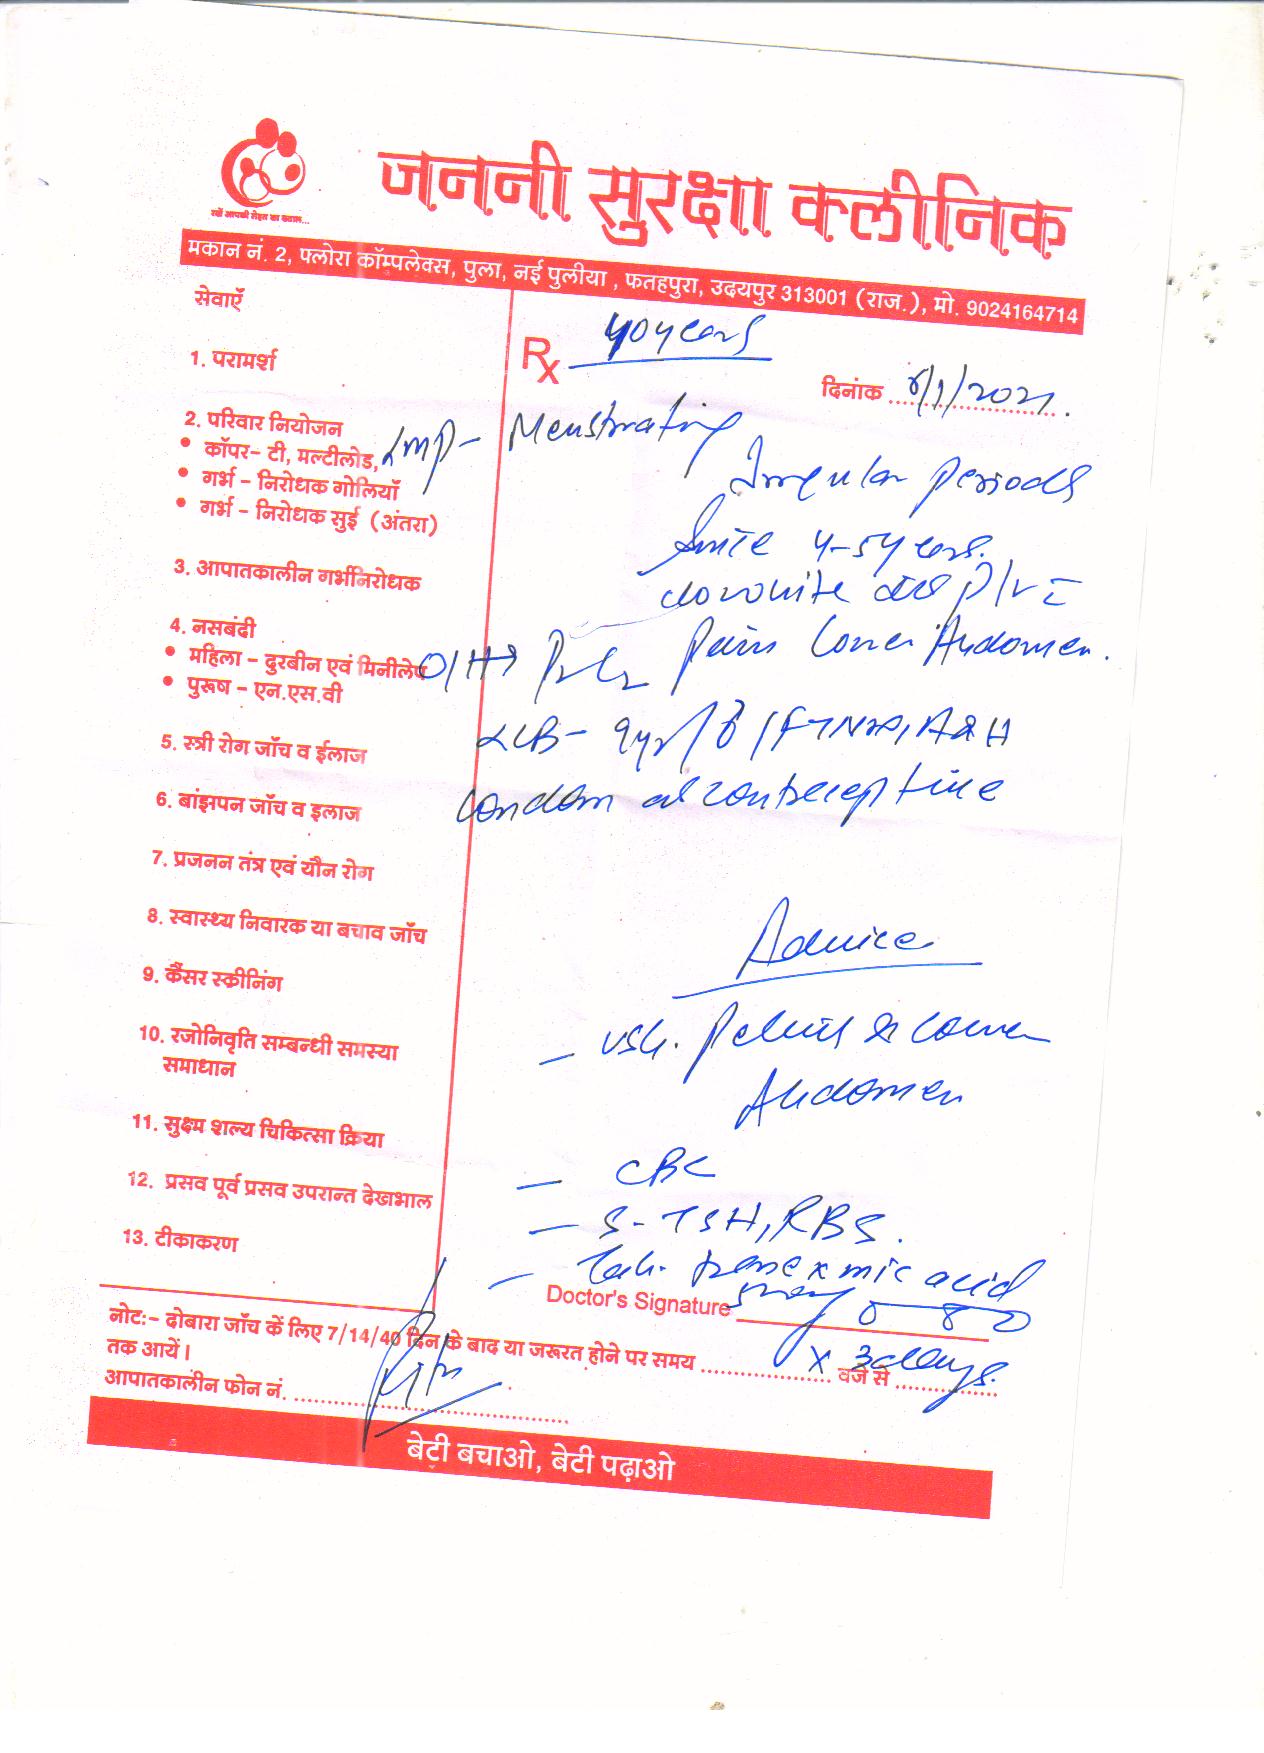 रखें आपकी सेहत का ख्याल...
जननी सुरक्षा क्लीनिक
मकान नं. 2, फ्लोरा कॉम्पलेक्स, पुला, नई पुलीया , फतहपुरा, उदयपुर 313001 (राज.), मो. 9024164714
सेवाएँ
1. परामर्श
2. परिवार नियोजन
• कॉपर- टी, मल्टीलोड,
• गर्भ - निरोधक गोलियाँ
• गर्भ - निरोधक सुई (अंतरा)
3. आपातकालीन गर्भनिरोधक
4. नसबंदी
• महिला - दुरबीन एवं मिनीलेप
• पुरूष - एन.एस.वी
5. स्त्री रोग जाँच व ईलाज
6. बांझपन जाँच व इलाज
7. प्रजनन तंत्र एवं यौन रोग
8. स्वास्थ्य निवारक या बचाव जाँच
9. कैंसर स्क्रीनिंग
10. रजोनिवृति सम्बन्धी समस्या
समाधान
11. सुक्ष्म शल्य चिकित्सा क्रिया
12. प्रसव पूर्व प्रसव उपरान्त देखभाल
13. टीकाकरण
Rx 40 years
दिनांक /1/2021.
LMP - Menstruating
Irregular periods
Since 4-5 years.
white P/V
O/H → Pain Lower Abdomen.
LCB - 9yr/ /FTNVD, A&H
Condom as contraceptive
Advice
- USG. Pelvis & Lower
Abdomen
- CBC
- S-TSH, RBS.
- Tab. tranexmic acid
Doctor's Signature 500mg
x 3days.
नोट:- दोबारा जाँच कें लिए 7/14/40 दिन के बाद या जरूरत होने पर समय .................... वजे से ................
तक आयें।
आपातकालीन फोन नं. ..................................................
बेटी बचाओ, बेटी पढ़ाओ